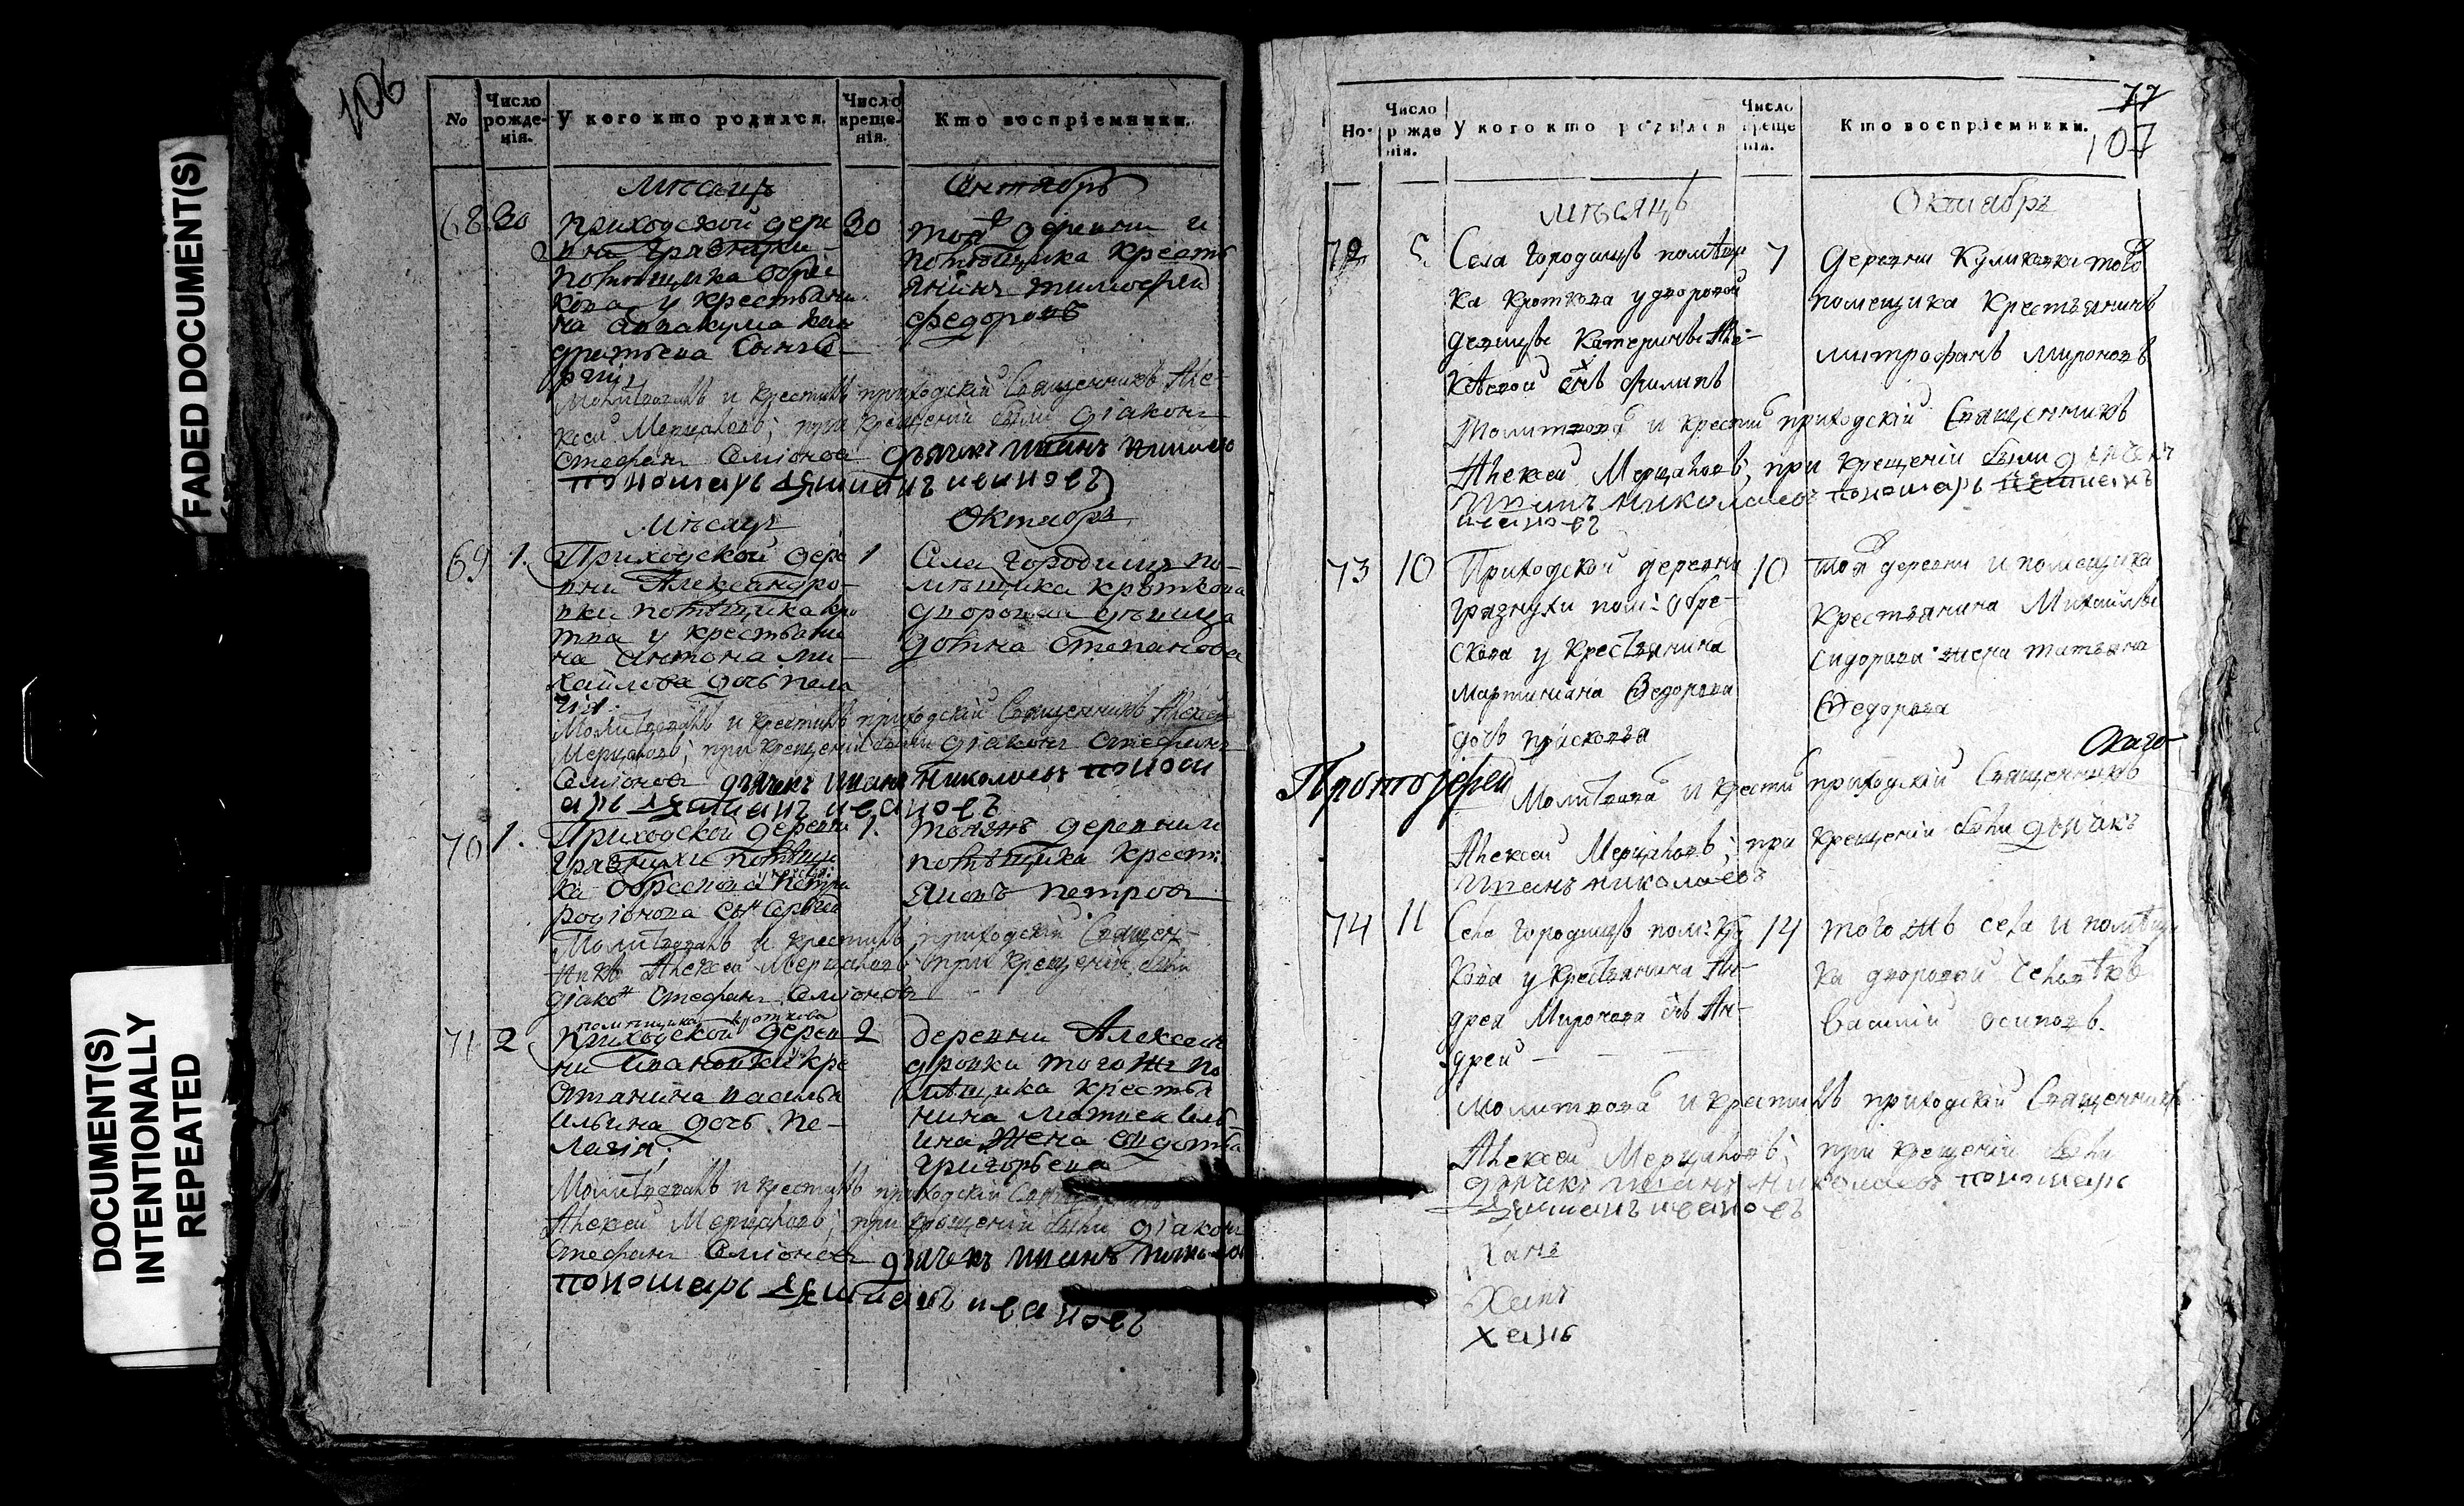 FADED DOCUMENT(S)
DOCUMENT(S)
INTENTIONALLY
REPEATED
106
No
Число рожде-нія.
У кого кто родился.
Число креще-нія.
Кто воспріемники.
мѣсяцъ
Сентябрь
68 30
приходской дере
вни Грязнухи
помѣщика Обрес
кова у крестьяни
на Аввакума Кон
дратьева сынъ
30
тояж деревни и
помѣщика кресть
янинъ Тимофей
Федоровъ
Молитвовалъ и крестилъ приходскій Священникъ Але-
ксей Мерцаловъ; при крещеніи были діаконъ
Стефанъ Семіоновъ дьячекъ Иванъ
пономарь ивановъ
мѣсяцъ
Октябрь
69 1.
Приходской дере
вни Александро-
вки помѣщика Кро
това у крестьяни
на Антона Ми-
хайлова дочь Пела
гія
1
Села Городищъ по-
мѣщика Кроткова
дворовая дѣвица
Домна Степанова
Молитвовалъ и крестилъ приходскій Священникъ Алексей
Мерцаловъ; при крещеніи были діаконъ Стефанъ
Семіоновъ дьячекъ Иванъ Николаевъ поном
арь ивановъ
70 1.
Приходской деревни
Грязнухи помѣщи
ка Обрескова у крест: Петра
Родіонова сын Сергей
1.
тояжъ деревни и
помѣщика крест:
Яковъ Петровъ
Молитвовалъ и крестилъ приходскій Священ-
никъ Алексей Мерцаловъ при крещеніи были
діакон Стефанъ Семіоновъ
71 2
помѣщика Кроткова
приходской дерев
ни Ивановки у кре
стьянина Василья
Ильина дочь Пе-
лагія;
2
деревни Алексан
дровки того ж по
мѣщика крестья
нина Матвея Иль
ина жена Авдотья
Григорьева
Молитвовалъ и крестилъ приходскій Священникъ
Алексей Мерцаловъ; при крещеніи были діаконъ
Стефанъ Семіоновъ дьячекъ Иванъ
пономарь ивановъ
77
107
Но.
Число рожде нія.
У кого кто родился
Число креще нія.
Кто воспріемники.
мѣсяцъ
Октябрь
72 5.
Села Городищъ помѣщи
ка Кроткова у дворовой
девицы Катерины Але-
ксѣевой снъ Филипъ
7
деревни Куликовки того
помещика крестьянинъ
Митрофанъ Мироновъ
Молитвовал и крестил приходскій Священникъ
Алексей Мерцаловъ; при крещеніи были дьячекъ
Иванъ Николаевъ пономарь
ивановъ
73 10
Приходской деревни
Грязнухи пом: Обре-
скова у крестьянина
Мартиніана Федорова
дочь Прасковья
10
тоя деревни и помещика
крестьянина Михайлы
Сидорова жена Татьяна
Федорова
Протоіерей
Молитвовал и крестил приходскій Священникъ
Алексей Мерцаловъ; при крещеніи были дьячекъ
Иванъ Николаевъ
74 11
Села Городищъ пом: Кро
кова у крестьянина Ан-
дрея Миронова снъ Ан-
дрей
14
тогожъ села и помѣщи
ка дворовой человѣкъ
Василій Осиповъ.
Молитвовал и крестилъ приходскій Священникъ
Алексей Мерцаловъ; при крещеніи были
дьячекъ Иванъ Николаевъ пономарь
ивановъ